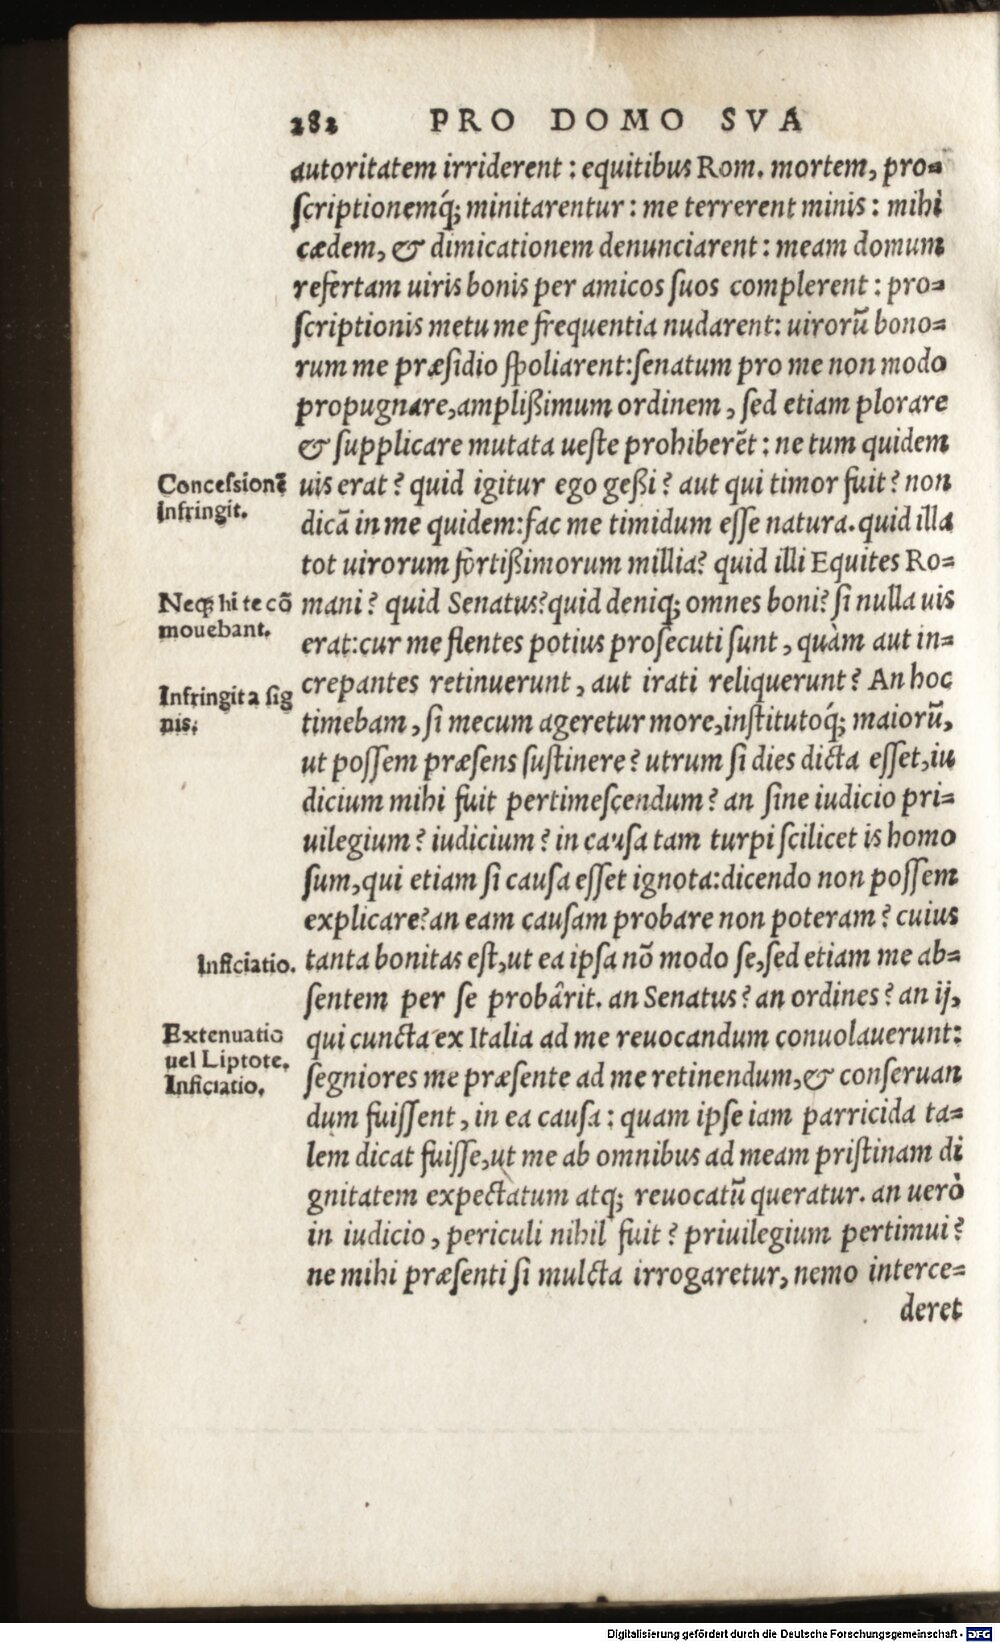 282 PRO DOMO SVA
autoritatem irriderent : equitibus Rom. mortem, pro=
ſcriptionemq́; minitarentur : me terrerent minis : mihi
cædem, & dimicationem denunciarent : meam domum
refertam uiris bonis per amicos ſuos complerent : pro=
ſcriptionis metu me frequentia nudarent: uirorũ bono=
rum me præſidio ſpoliarent:ſenatum pro me non modo
propugnare,amplißimum ordinem, ſed etiam plorare
& ſupplicare mutata ueſte prohiberẽt : ne tum quidem
Conceſsionẽ
infringit.
uis erat? quid igitur ego geßi? aut qui timor fuit? non
dicã in me quidem:fac me timidum eſſe natura.quid illa
tot uirorum fortißimorum millia? quid illi Equites Ro=
Neq; hi te cõ
mouebant.
mani? quid Senatus?quid deniq; omnes boni? ſi nulla uis
erat:cur me flentes potius proſecuti ſunt, quàm aut in=
Infringit a ſig
nis.
crepantes retinuerunt, aut irati reliquerunt? An hoc
timebam, ſi mecum ageretur more,inſtitutoq́; maiorũ,
ut poſſem præſens ſuſtinere? utrum ſi dies dicta eſſet,iu
dicium mihi fuit pertimeſcendum? an ſine iudicio pri=
uilegium? iudicium? in cauſa tam turpi ſcilicet is homo
ſum,qui etiam ſi cauſa eſſet ignota:dicendo non poſſem
explicare?an eam cauſam probare non poteram? cuius
Inficiatio.
tanta bonitas eſt,ut ea ipſa nõ modo ſe,ſed etiam me ab=
ſentem per ſe probârit. an Senatus? an ordines? an ij,
Extenuatio
uel Liptote.
Inficiatio.
qui cuncta ex Italia ad me reuocandum conuolauerunt:
ſegniores me præſente ad me retinendum,& conſeruan
dum fuiſſent, in ea cauſa : quam ipſe iam parricida ta=
lem dicat fuiſſe,ut me ab omnibus ad meam priſtinam di
gnitatem expectatum atq; reuocatũ queratur. an uerò
in iudicio, periculi nihil fuit? priuilegium pertimui?
ne mihi præſenti ſi mulcta irrogaretur, nemo interce=
deret
Digitalisierung gefördert durch die Deutsche Forschungsgemeinschaft - DFG